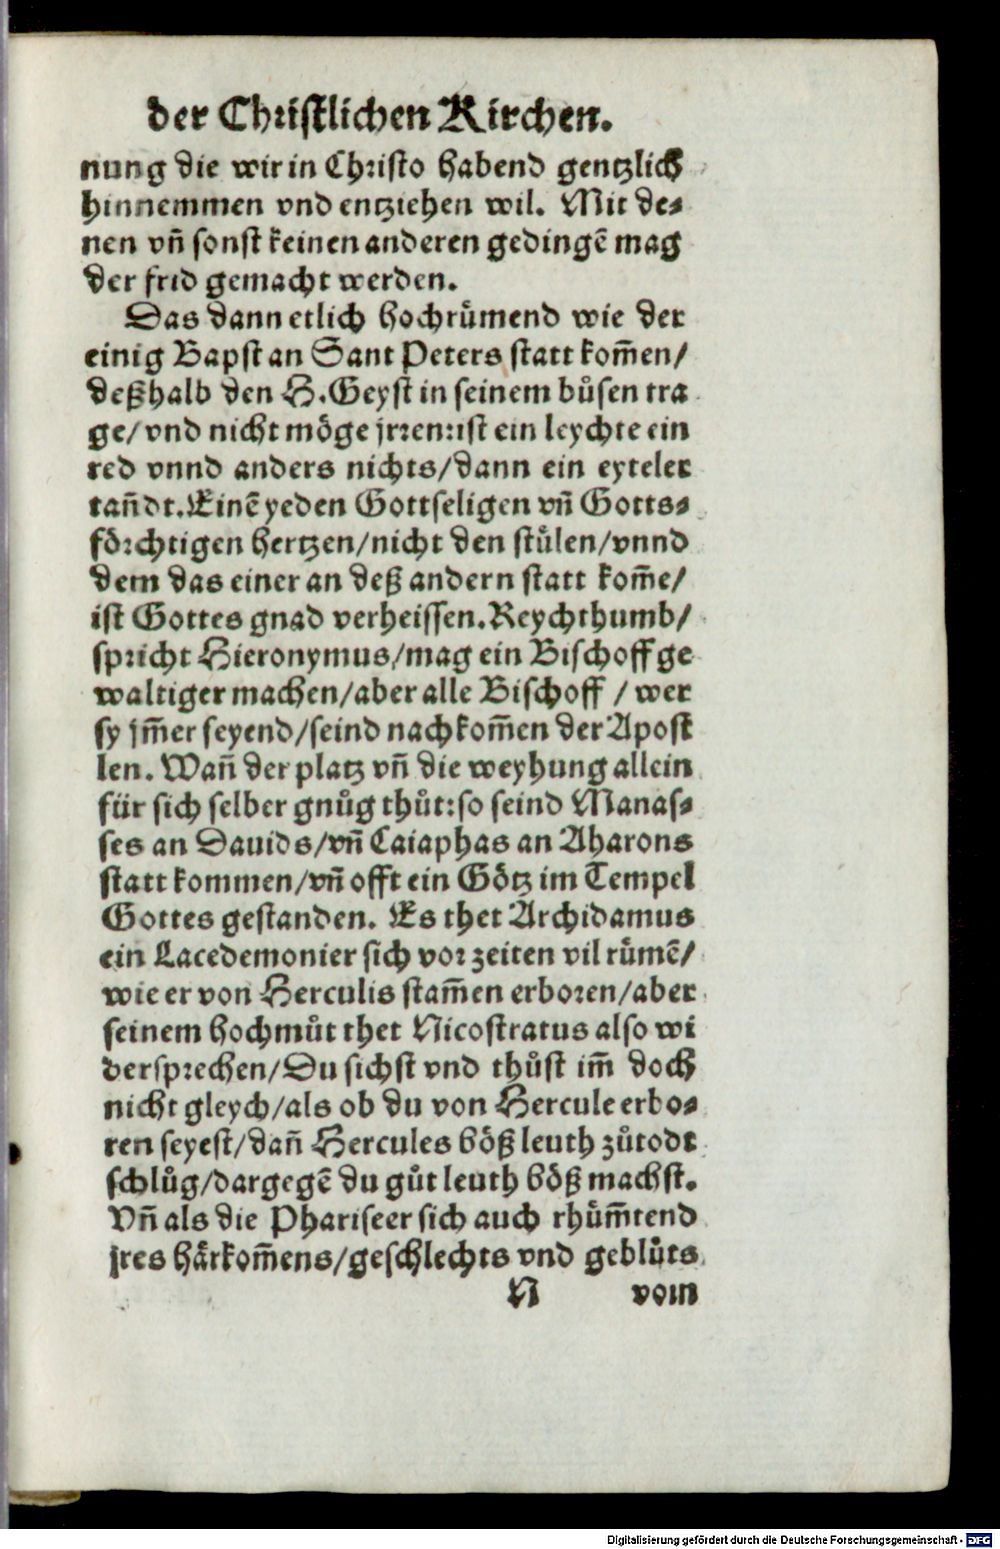 der Christlichen Kirchen.
nung die wir in Christo habend gentzlich
hinnemmen vnd entziehen wil. Mit de⸗
nen vñ sonst keinen anderen gedingẽ mag
der frid gemacht werden.
Das dann etlich hochruͤmend wie der
einig Bapst an Sant Peters statt kom̃en/
deßhalb den H. Geyst in seinem buͤsen tra
ge/ vnd nicht moͤge jrren: ist ein leychte ein
red vnnd anders nichts/ dann ein eyteler
tañdt. Einẽ yeden Gottseligen vñ Gotts⸗
foͤrchtigen hertzen/ nicht den stuͤlen/ vnnd
dem das einer an deß andern statt kom̃e/
ist Gottes gnad verheissen. Reychthumb/
spricht Hieronymus/ mag ein Bischoff ge
waltiger machen/ aber alle Bischoff / wer
sy jm̃er seyend/ seind nachkom̃en der Apost
len. Wañ der platz vñ die weyhung allein
für sich selber gnuͦg thuͦt: so seind Manas⸗
ses an Dauids/ vñ Caiaphas an Aharons
statt kommen/ vñ offt ein Goͤtz im Tempel
Gottes gestanden. Es thet Archidamus
ein Lacedemonier sich vor zeiten vil ruͤmẽ/
wie er von Herculis stam̃en erboren/ aber
seinem hochmuͦt thet Nicostratus also wi
dersprechen/ Du sichst vnd thuͦst im̃ doch
nicht gleych/ als ob du von Hercule erbo⸗
ren seyest/ dañ Hercules boͤß leuth zuͦtodt
schluͦg/ dargegẽ du guͦt leuth boͤß machst.
Vñ als die Phariseer sich auch rhuͤm̃tend
jres haͤrkom̃ens/ geschlechts vnd gebluͤts
N vom
Digitalisierung gefördert durch die Deutsche Forschungsgemeinschaft - DFG